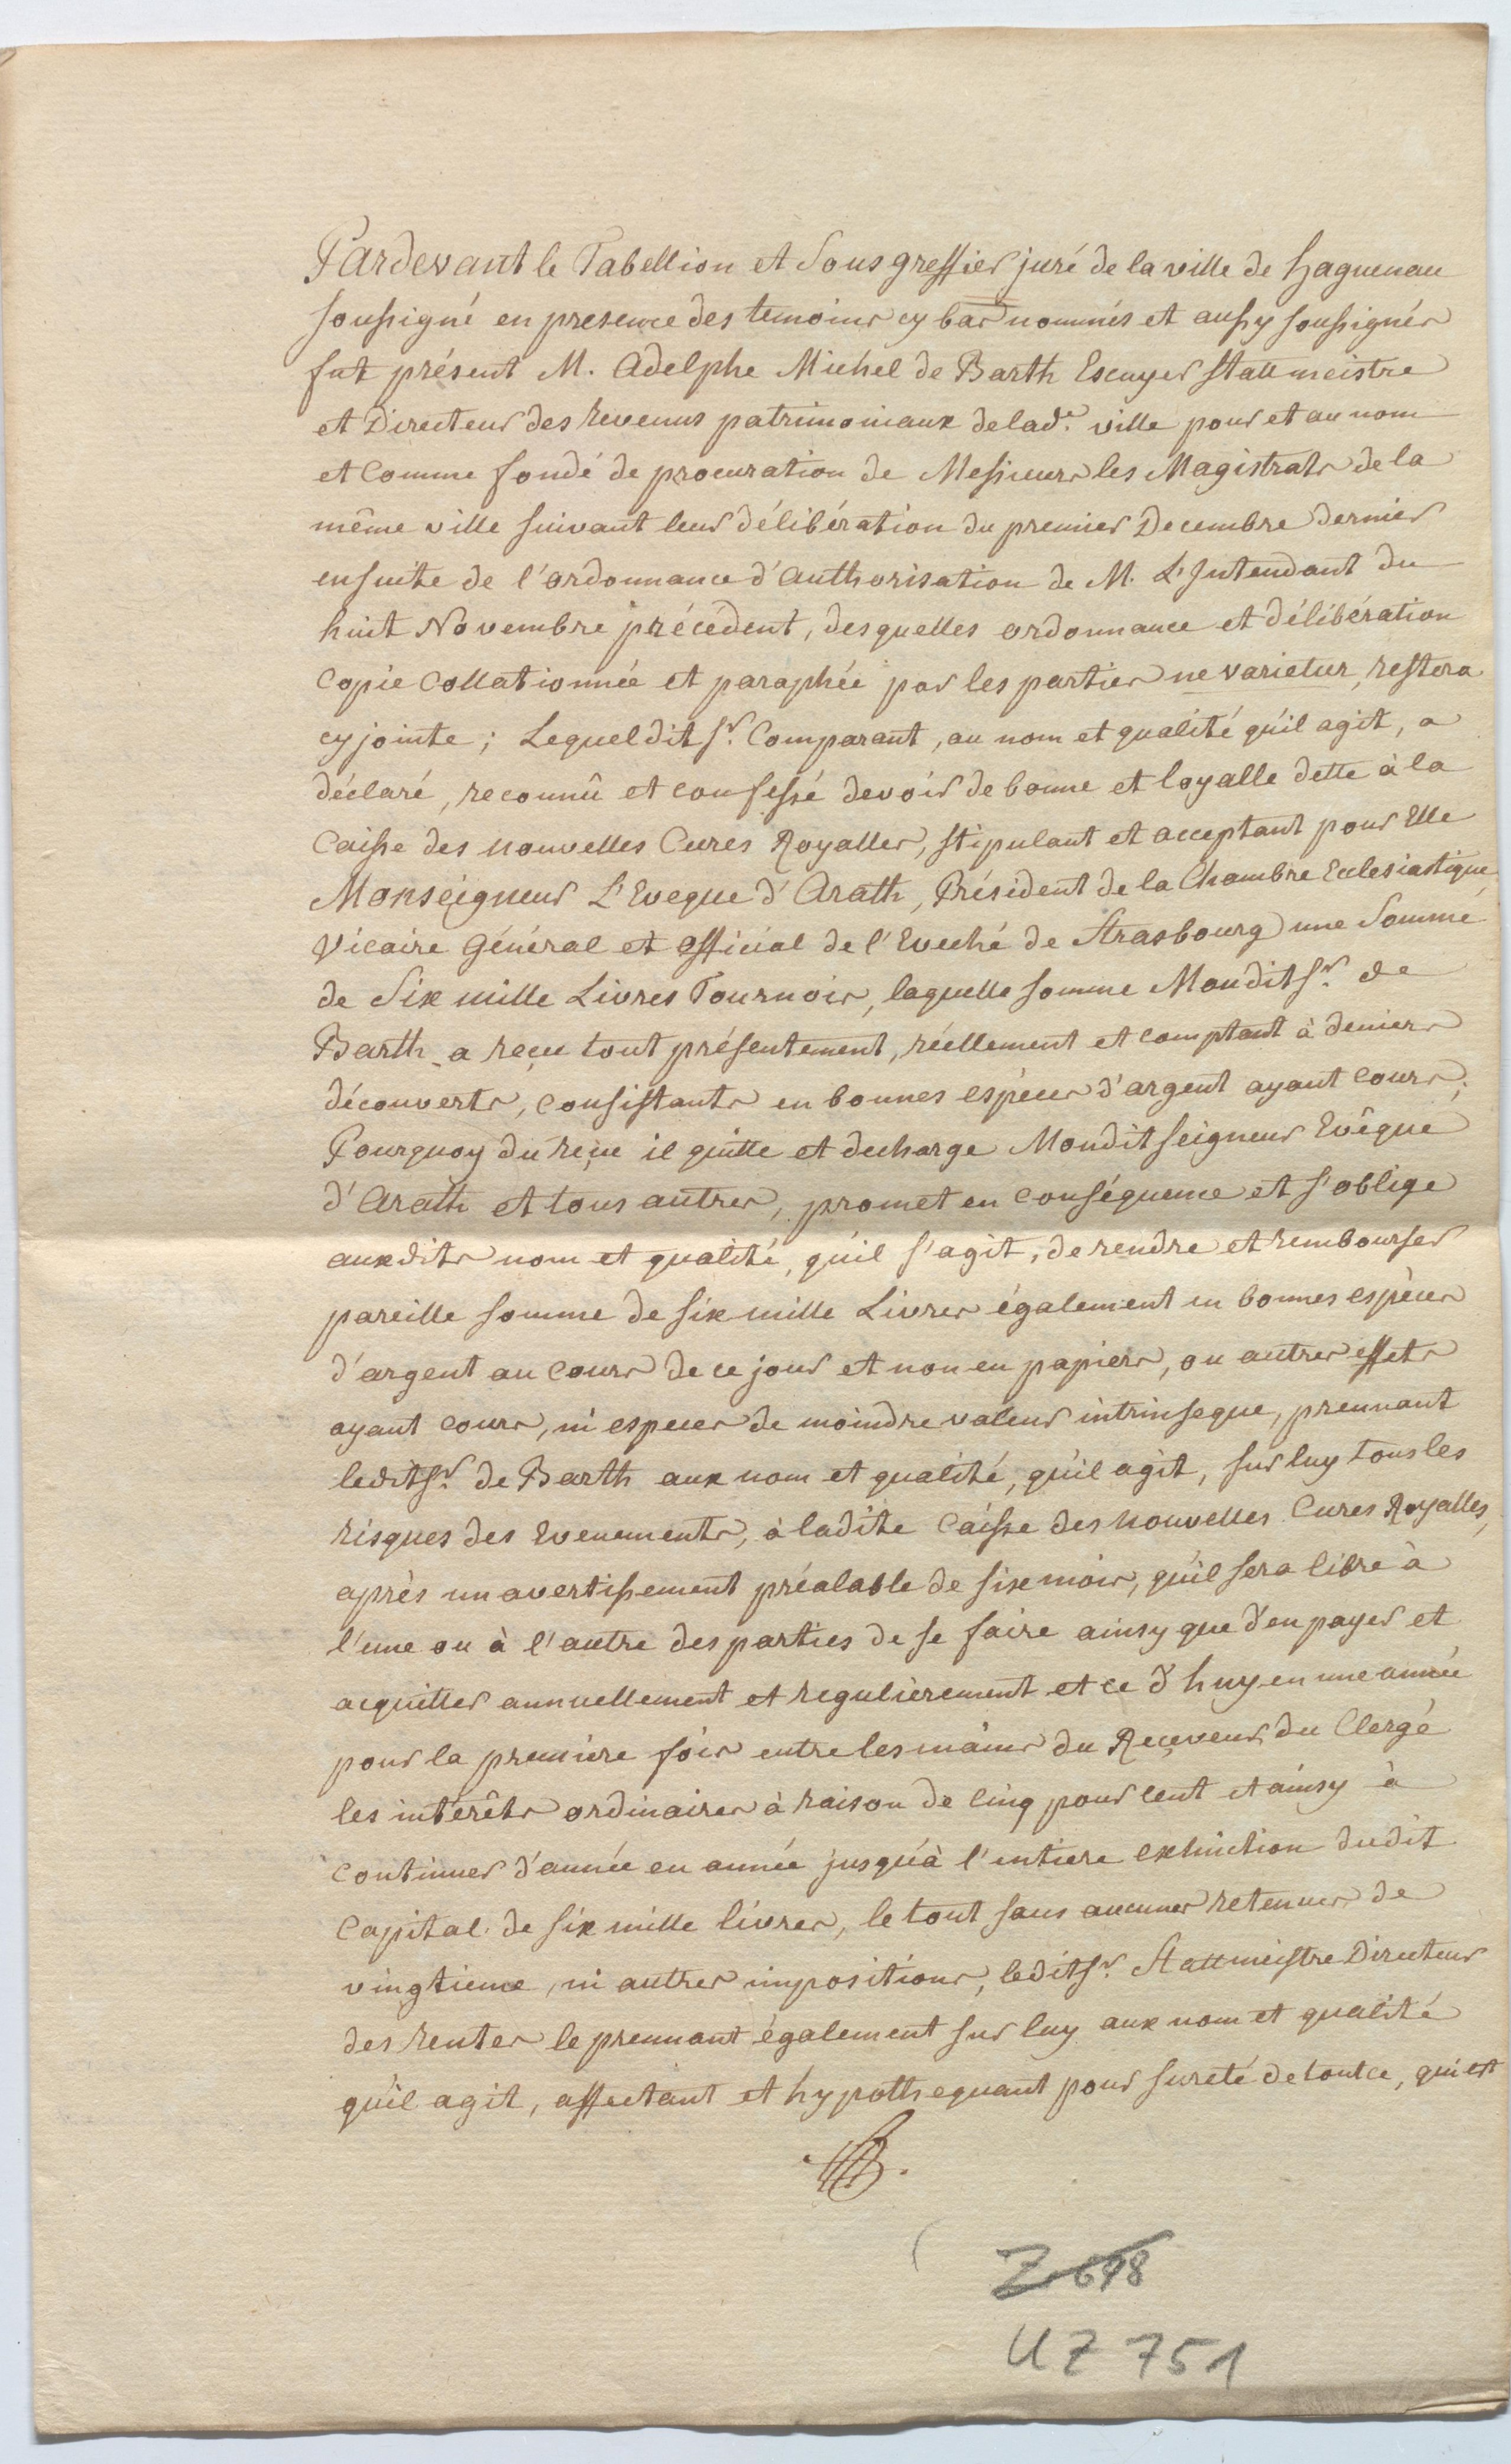 Pardevant le Tabellion et Sousgreffier juré de la ville de Haguenau
soussigné en presence des temoins cy bas nommés et aussy soussignés
fut présent M. Adelphe Michel de Barth Escuyer Stattmeistre
et Directeur des revenus patrimoniaux de lad.e ville pour et au nom
et Comme fondé de procuration de Messieurs les Magistrats de la
même ville suivant leur délibération du premier Decembre dernier
ensuite de l'ordonnance d'authorisation de M. L'Intendant du
huit Novembre précédent, desquelles ordonnance et délibération
Copie Collationnée et paraphée par les parties ne varietur, restera
cy jointe; Lequeldit Sr. Comparant, au nom et qualité qu'il agit, a
déclaré, reconnû et confessé devoir de bonne et loyalle dette à la
Caisse des nouvelles Cures Royalles, stipulant et acceptant pour Elle
Monseigneur L'Eveque d'Arath, Président de la Chambre Ecclesiastique,
Vicaire Général et Official de l'Eveché de Strasbourg une Somme
de Six mille Livres Tournois, laquelle somme Mondit Sr. de
Barth a reçu tout présentement, réellement et comptant à deniers
découverts, consistants en bonnes espèces d'argent ayant cours;
Pourquoy du reçu il quitte et decharge Mondit seigneur Evêque
d'Arath et tous autres, promet en conséquence et s'oblige
auxdits nom et qualité, qu'il s'agit, de rendre et rembourser
pareille somme de six mille Livres également en bonnes espèces
d'argent au cours de ce jour et non en papiers, ou autres effets
ayant cours, ni especes de moindre valeur intrinseque, prennant
ledit Sr. de Barth aux nom et qualité, qu'il agit, sur luy tous les
risques des Evenements, à ladite Caisse des nouvelles Cures Royalles,
après un avertissement préalable de six mois, qu'il sera libre à
l'une ou à l'autre des parties de se faire ainsy que d'en payer et
acquitter annuellement et regulièrement et ce d'huy en une année
pour la première fois entre les mains du Receveur du Clergé
les intérêts ordinaires à raison de cinq pour cent et ainsy à
continuer d'année en année jusqu'à l'entiere extinction dudit
Capital de six mille livres, le tout sans aucunes retenues de
vingtieme, ni autres impositions, ledit Sr. Stattmeistre Directeur
des rentes le prennant également sur luy aux nom et qualité
qu'il agit, affectant et hypothequant pour sureté de tout ce, qui est
Z 698
UZ 751